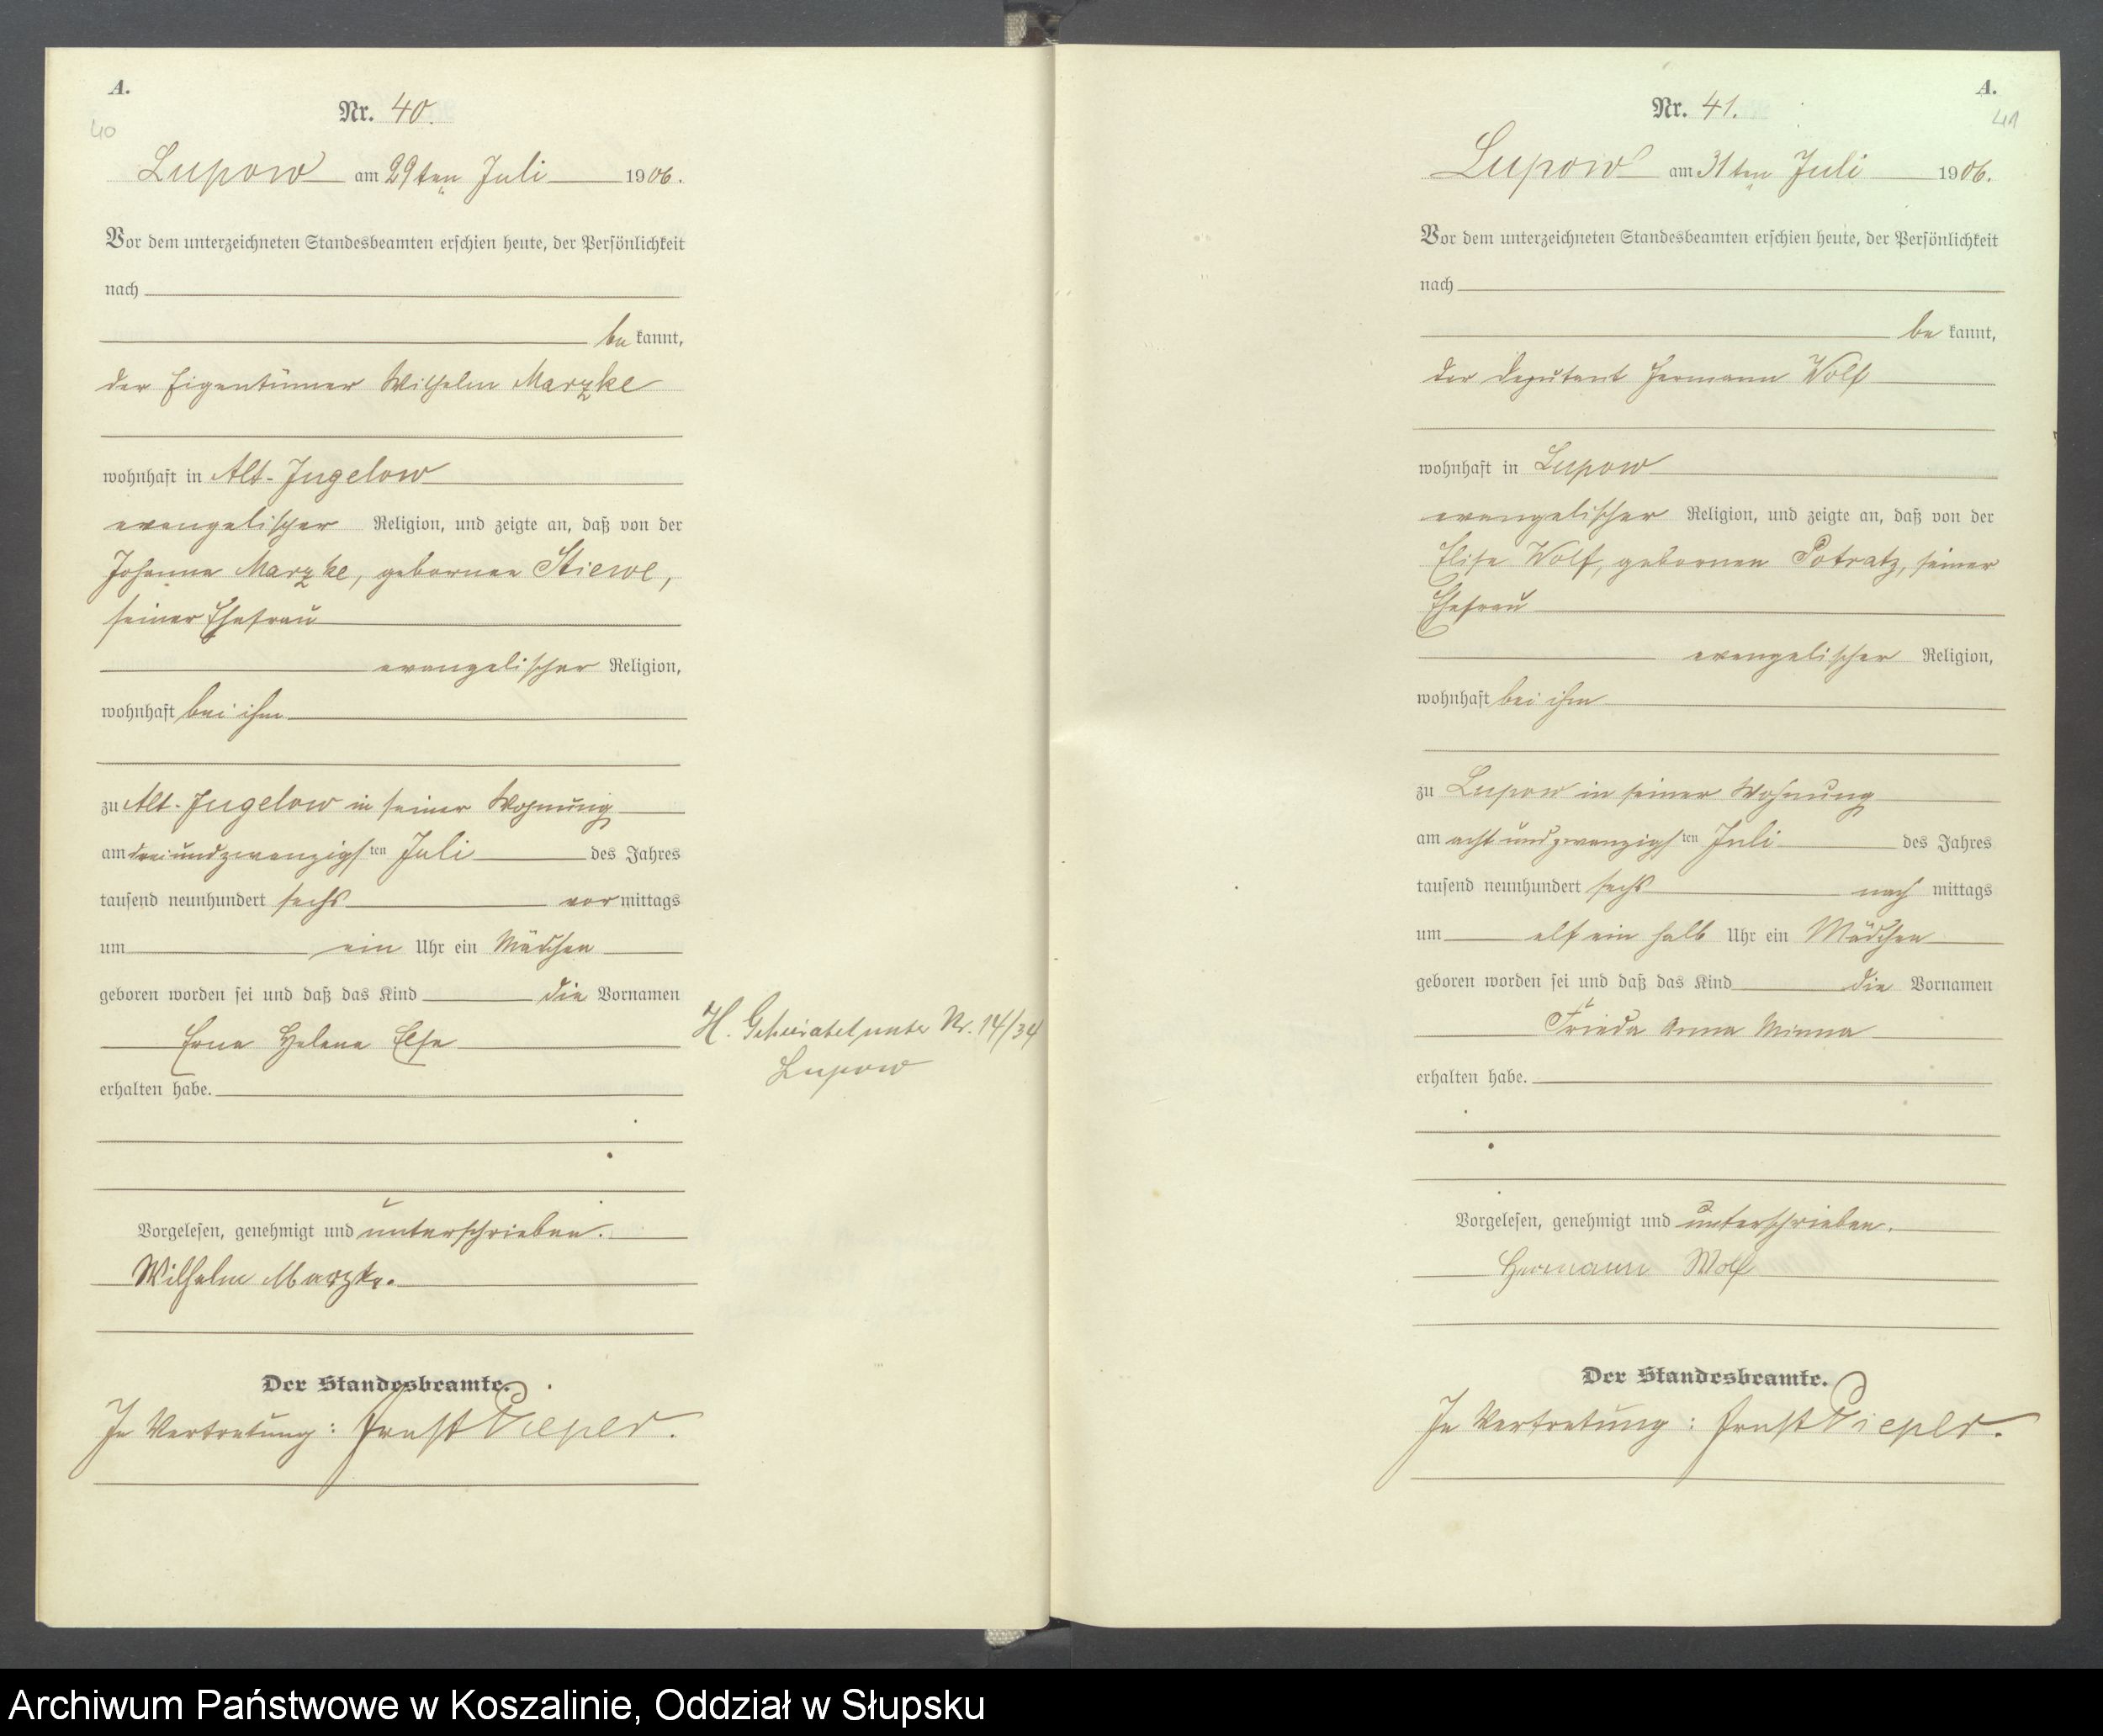 A.
Nr. 40.
40
Lupow am 29ten Juli 1906.
Vor dem unterzeichneten Standesbeamten erschien heute, der Persönlichkeit
nach
be kannt,
der Eigentümer Wilhelm Marzke
wohnhaft in Alt-Jugelow
evangelischer Religion, und zeigte an, daß von der
Johanna Marzke, geborenen Stiewe,
seiner Ehefrau
evangelischer Religion,
wohnhaft bei ihm
zu Alt-Jugelow in seiner Wohnung
am dreiundzwanzigsten Juli des Jahres
tausend neunhundert sechs vormittags
um ein Uhr ein Mädchen
geboren worden sei und daß das Kind die Vornamen
Erna Helene Else
erhalten habe.
Vorgelesen, genehmigt und unterschrieben.
Wilhelm Marzke.
Der Standesbeamte.
In Vertretung: Ernst Pieper.
H. Geheiratet unter Nr. 14/34
Lupow
A.
Nr. 41.
41
Lupow am 31ten Juli 1906.
Vor dem unterzeichneten Standesbeamten erschien heute, der Persönlichkeit
nach
be kannt,
der Deputant Hermann Wolf
wohnhaft in Lupow
evangelischer Religion, und zeigte an, daß von der
Elise Wolf, geborenen Potratz, seiner
Ehefrau
evangelischer Religion,
wohnhaft bei ihm
zu Lupow in seiner Wohnung
am achtundzwanzigsten Juli des Jahres
tausend neunhundert sechs nach mittags
um elf ein halb Uhr ein Mädchen
geboren worden sei und daß das Kind die Vornamen
Frieda Anna Minna
erhalten habe.
Vorgelesen, genehmigt und unterschrieben.
Hermann Wolf
Der Standesbeamte.
In Vertretung: Ernst Pieper.
Archiwum Państwowe w Koszalinie, Oddział w Słupsku